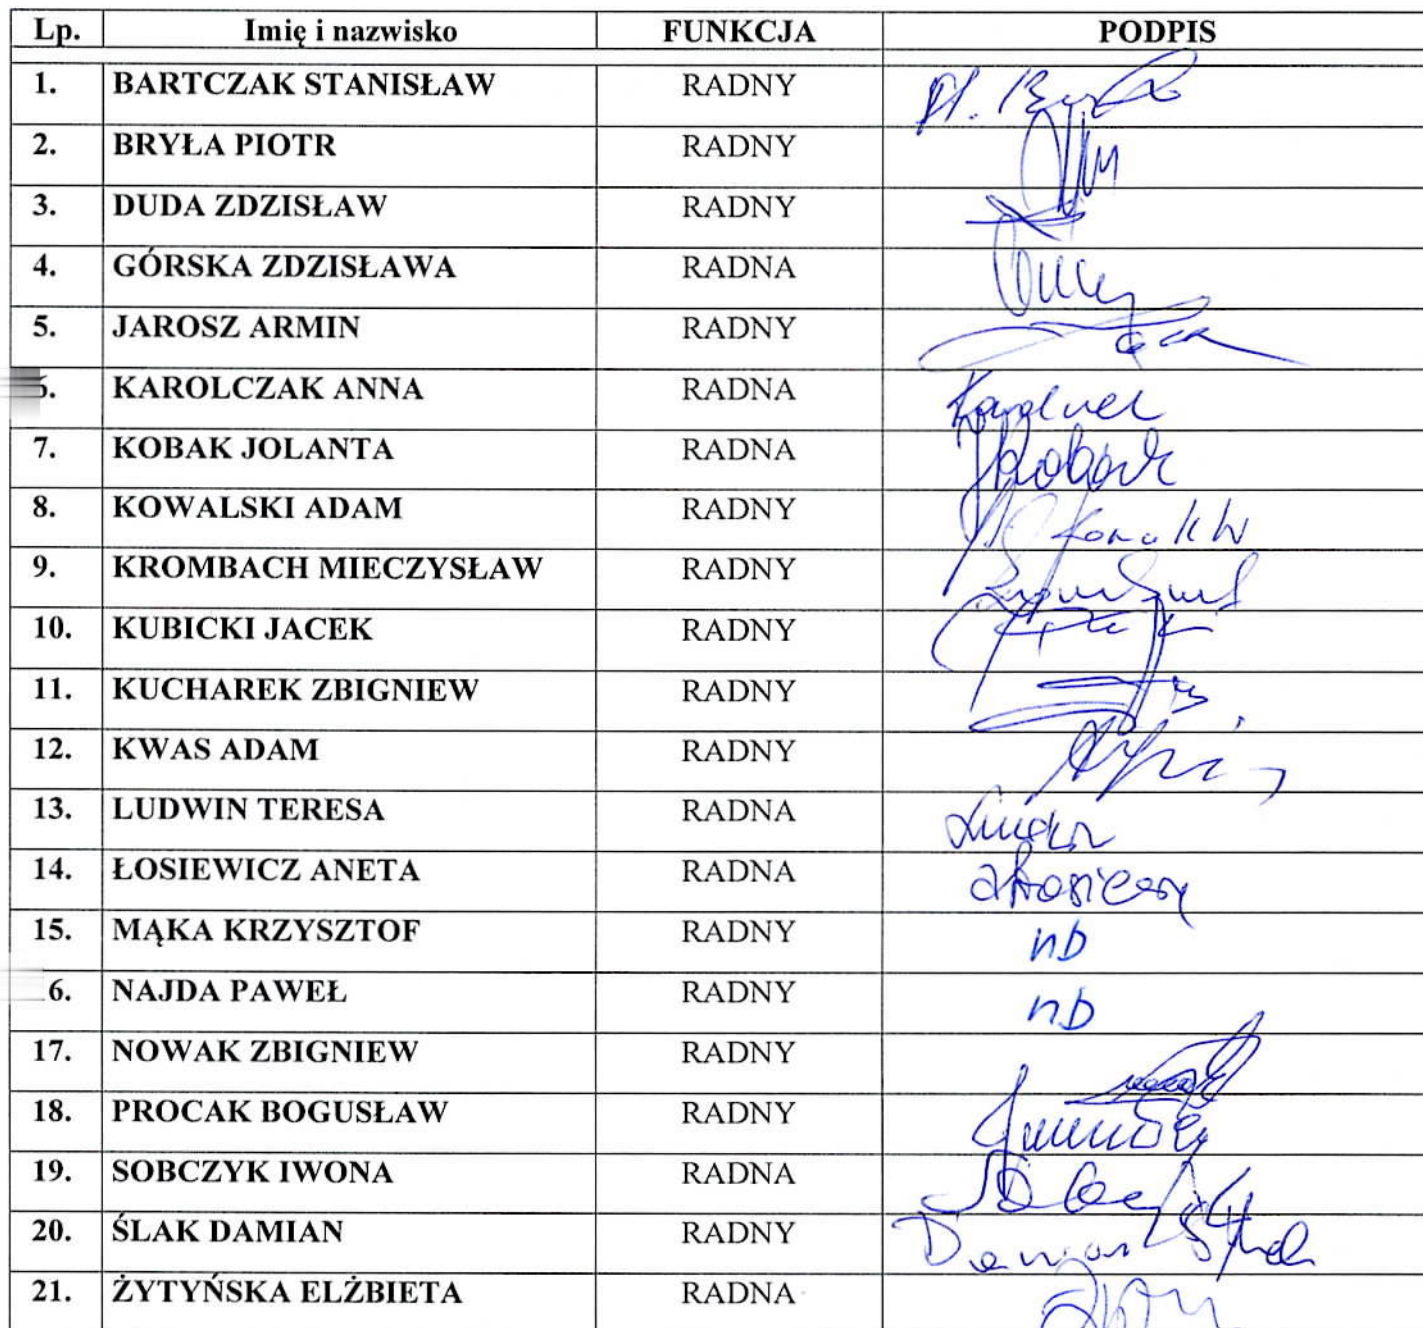 Lp. Imię i nazwisko FUNKCJA PODPIS
1. BARTCZAK STANISŁAW RADNY
2. BRYŁA PIOTR RADNY
3. DUDA ZDZISŁAW RADNY
4. GÓRSKA ZDZISŁAWA RADNA
5. JAROSZ ARMIN RADNY
6. KAROLCZAK ANNA RADNA
7. KOBAK JOLANTA RADNA
8. KOWALSKI ADAM RADNY
9. KROMBACH MIECZYSŁAW RADNY
10. KUBICKI JACEK RADNY
11. KUCHAREK ZBIGNIEW RADNY
12. KWAS ADAM RADNY
13. LUDWIN TERESA RADNA
14. ŁOSIEWICZ ANETA RADNA
15. MĄKA KRZYSZTOF RADNY nb
6. NAJDA PAWEŁ RADNY nb
17. NOWAK ZBIGNIEW RADNY
18. PROCAK BOGUSŁAW RADNY
19. SOBCZYK IWONA RADNA
20. ŚLAK DAMIAN RADNY
21. ŻYTYŃSKA ELŻBIETA RADNA